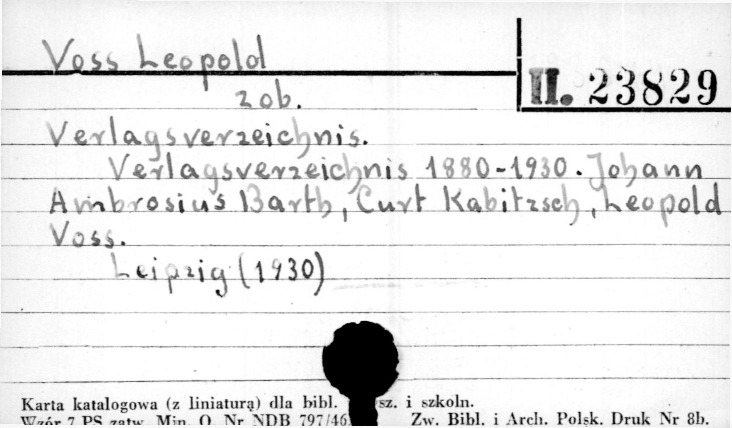 Voss Leopold
II. 23829
zob.
Verlagsverzeichnis.
Verlagsverzeichnis 1880-1930. Johann
Ambrosius Barth, Curt Kabitzsch, Leopold
Voss.
Leipzig (1930)
Karta katalogowa (z liniaturą) dla bibl. sz. i szkoln.
Wzór 7 PS zatw. Min. O. Nr NDB 797/46. Zw. Bibl. i Arch. Polsk. Druk Nr 8b.